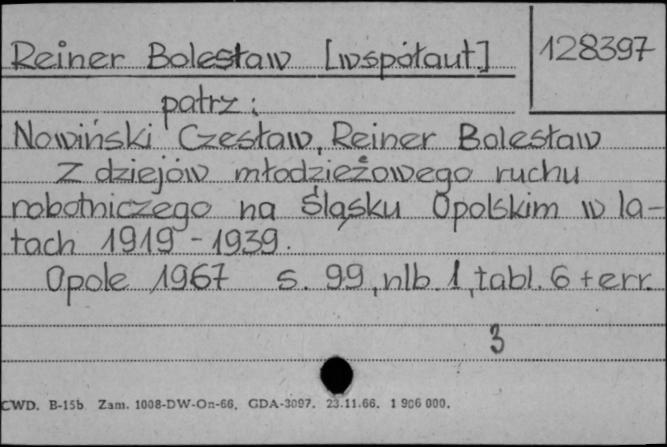 Reiner Bolesław [współaut.] 128397
patrz:
Nowiński Czesław, Reiner Bolesław
Z dziejów młodzieżowego ruchu
robotniczego na Śląsku Opolskim w la-
tach 1919-1939.
Opole 1967 s. 99, nlb. 1, tabl. 6 + err.
3
CWD. B-15b Zam. 1008-DW-On-66. GDA-3097. 23.11.66. 1 906 000.